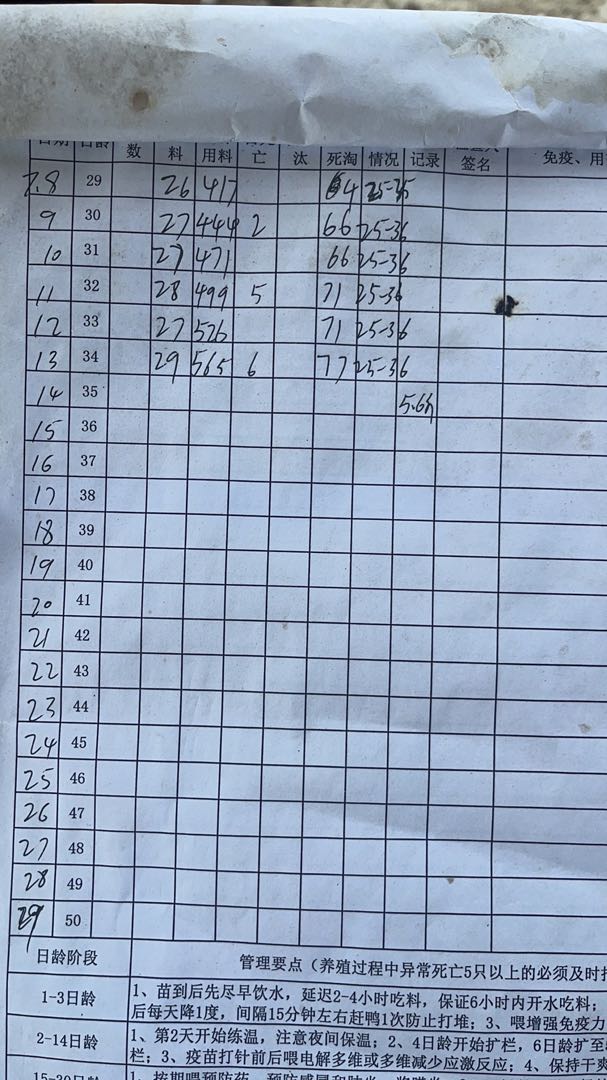 日期 日龄 数 料 用料 亡 汰 死淘 情况 记录 签名 免疫、用
7.8 29 26 417 64 25-35
9 30 27 444 2 66 25-36
10 31 27 471 66 25-36
11 32 28 499 5 71 25-36
12 33 27 526 71 25-36
13 34 29 565 6 77 25-36
14 35
15 36
16 37
17 38
18 39
19 40
20 41
21 42
22 43
23 44
24 45
25 46
26 47
27 48
28 49
29 50
日龄阶段 管理要点（养殖过程中异常死亡5只以上的必须及时
1-3日龄 1、苗到后先尽早饮水，延迟2-4小时吃料，保证6小时内开水吃料；
后每天降1度，间隔15分钟左右赶鸭1次防止打堆；3、喂增强免疫力
2-14日龄 1、第2天开始练温，注意夜间保温；2、4日龄开始扩栏，6日龄扩至
栏；3、疫苗打针前后喂电解多维或多维减少应激反应；4、保持干爽
15-30日龄 1、按期喂预防药，预防感冒和